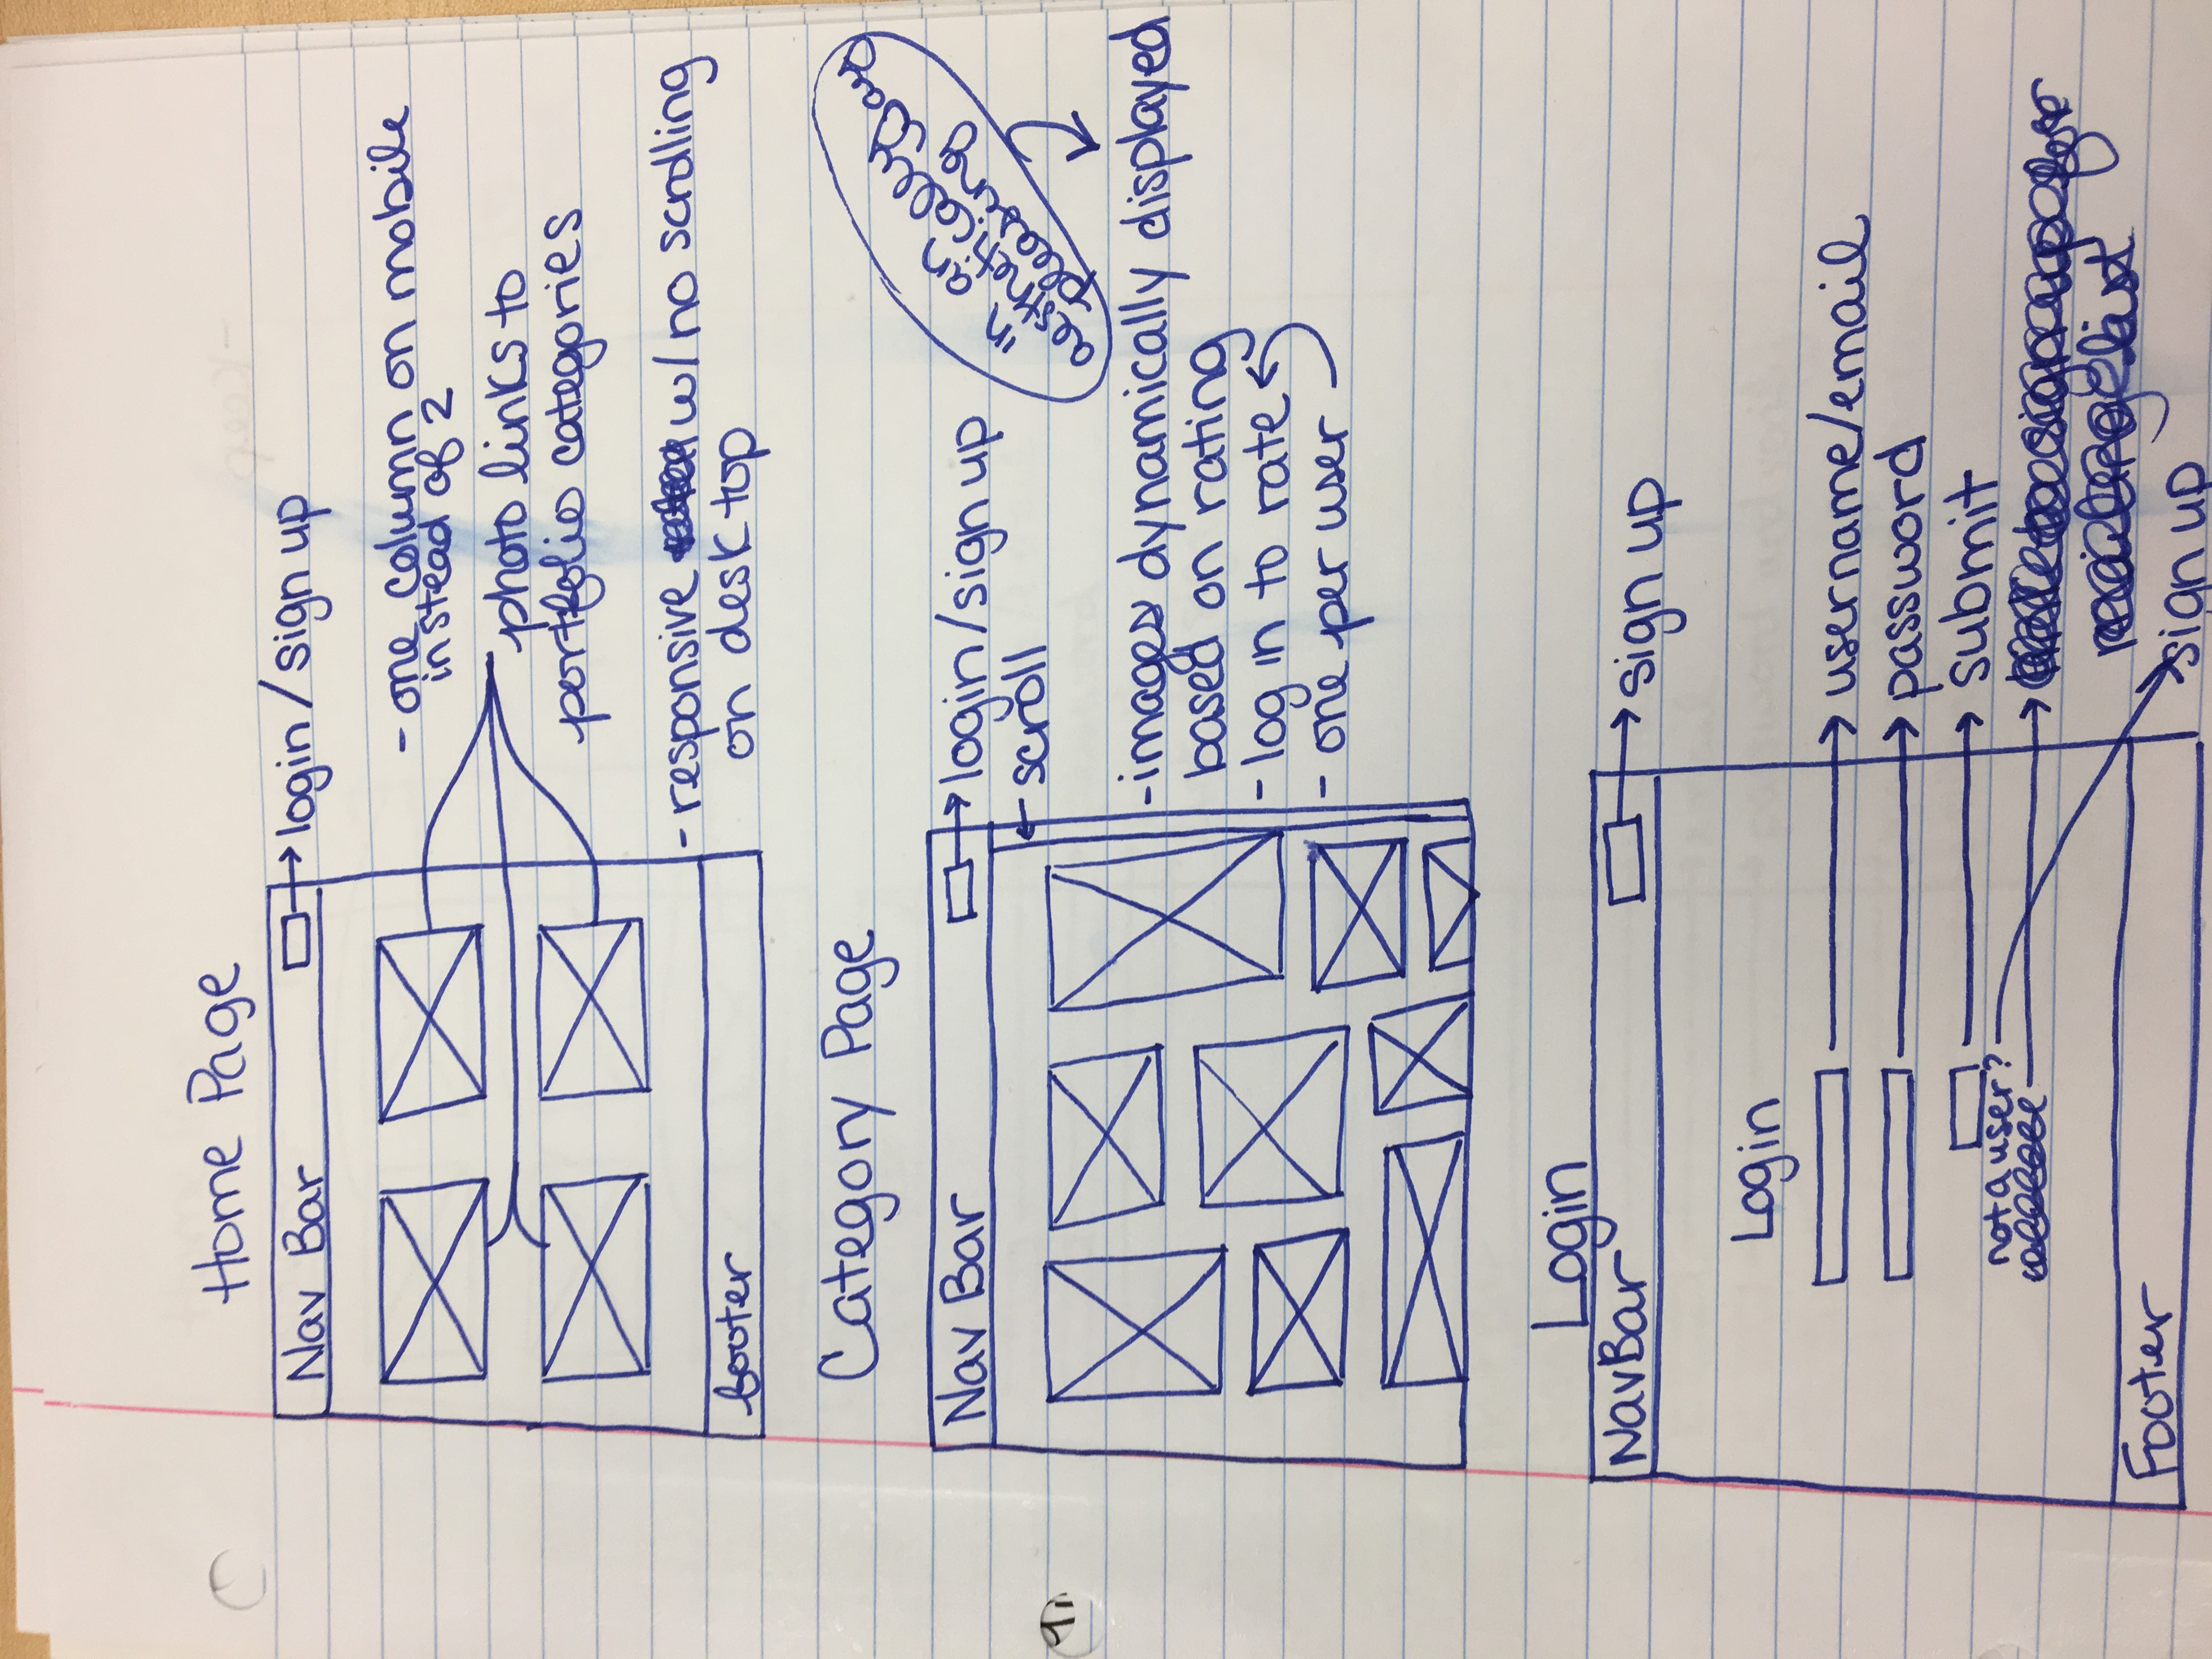 Home Page
Nav Bar
login/sign up
- one column on mobile
instead of 2
photo links to
portfolio categories
- responsive w/ no scrolling
on desktop
footer
Category Page
Nav Bar
login/sign up
scroll
in an
aesthetically
pleasing way
- images dynamically displayed
based on rating
- log in to rate
- one per user
Login
NavBar
sign up
Login
username/email
password
submit
not a user?
sign up
Footer